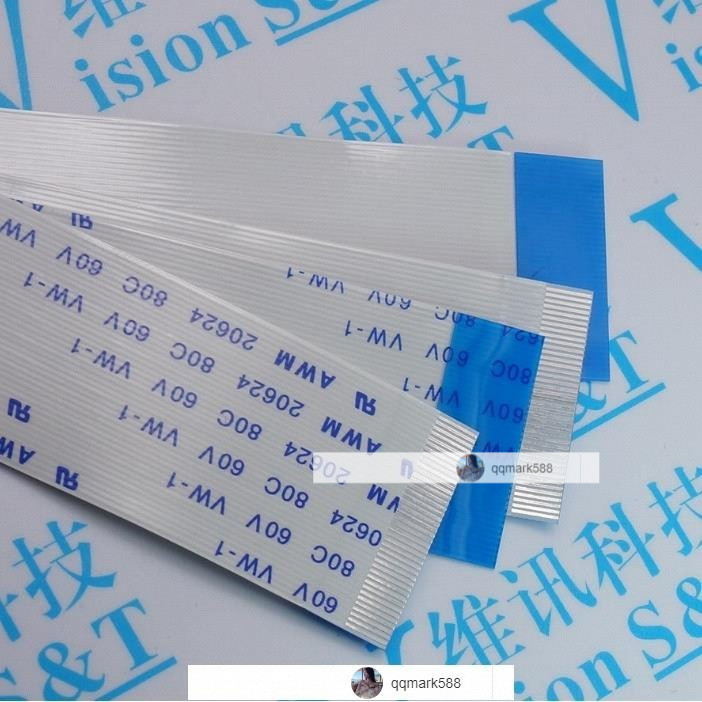 维
ision S&
V
ision S&T
维讯科技
AWM 20624 80C 60V VW-1
AWM 20624 80C 60V VW-1
AWM 20624 80C 60V VW-1
20624 80C 60V VW-1
0624 80C 60V VW-1
80C 60V VW-1
60V VW-1
60V VW-1
80C 60V VW-1
60V VW-1
qqmark588
科技
S&T
维讯科技
ision S&T
qqmark588